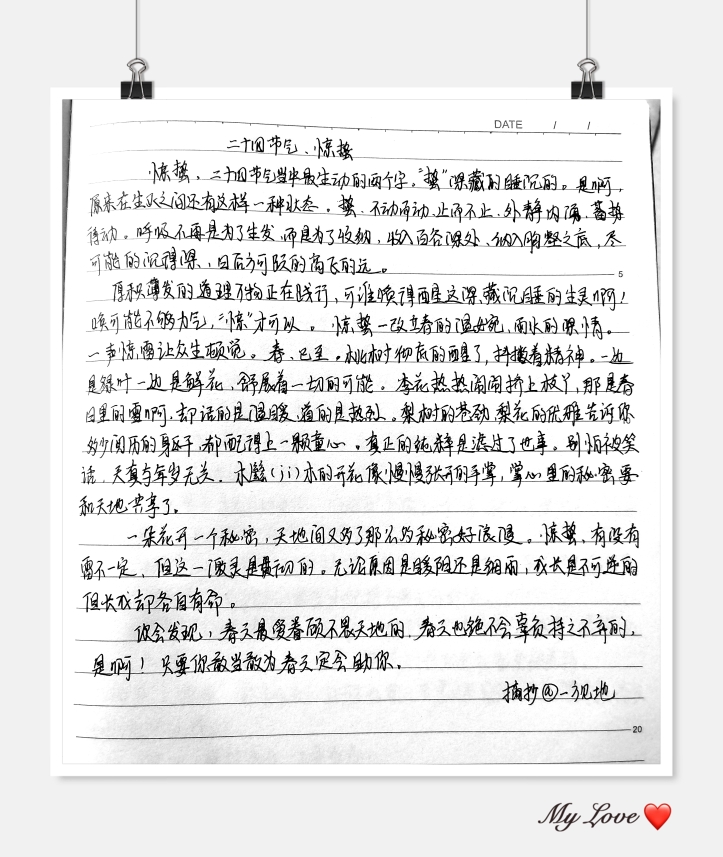 DATE / /
二十四节气、惊蛰
惊蛰，二十四节气当中最生动的两个字。“蛰”深藏的睡沉的。是啊，
原来在生死之间还有这样一种状态。蛰、不动而动、止而不止、外静内涌、蓄势
待动。呼吸不再是为了生发，而是为了收纳，收入百谷深处、纳入胸壑之底，尽
可能的沉得深，日后方可跃的高飞的远。
5
厚积薄发的道理万物正在践行，可谁唤得醒这深藏沉睡的生灵啊！
唤可能不够力气，“惊”才可以。惊蛰一改立春的温婉，雨水的深情。
一声惊雷让众生顿觉。春、已至。桃树彻底的醒了，抖擞着精神。一边
是绿叶一边是鲜花、舒展着一切的可能。李花热热闹闹挤上枝丫，那是春
日里的雪啊，却话的是温暖、道的是热烈。梨树的苍劲梨花的优雅告诉你
多少阅历的身躯，都配得上一颗童心。真正的纯粹是滤过了世事。别怕被笑
话，天真与年岁无关。木(jì)木的开花像慢慢张开的手掌，掌心里的秘密要
和天地共享了。
一朵花开一个秘密，天地间又多了那么多的秘密好浪漫。惊蛰，有没有
雷不一定，但这一激灵是震动的。无论原因是暖阳还是细雨，成长是不可逆的
但长成却各自有命。
你会发现，春天最爱眷顾不畏天地的，春天也绝不会辜负持之不弃的，
是啊！只要你敢当敢为春天定会助你。
摘抄@一观地
20
My Love❤️